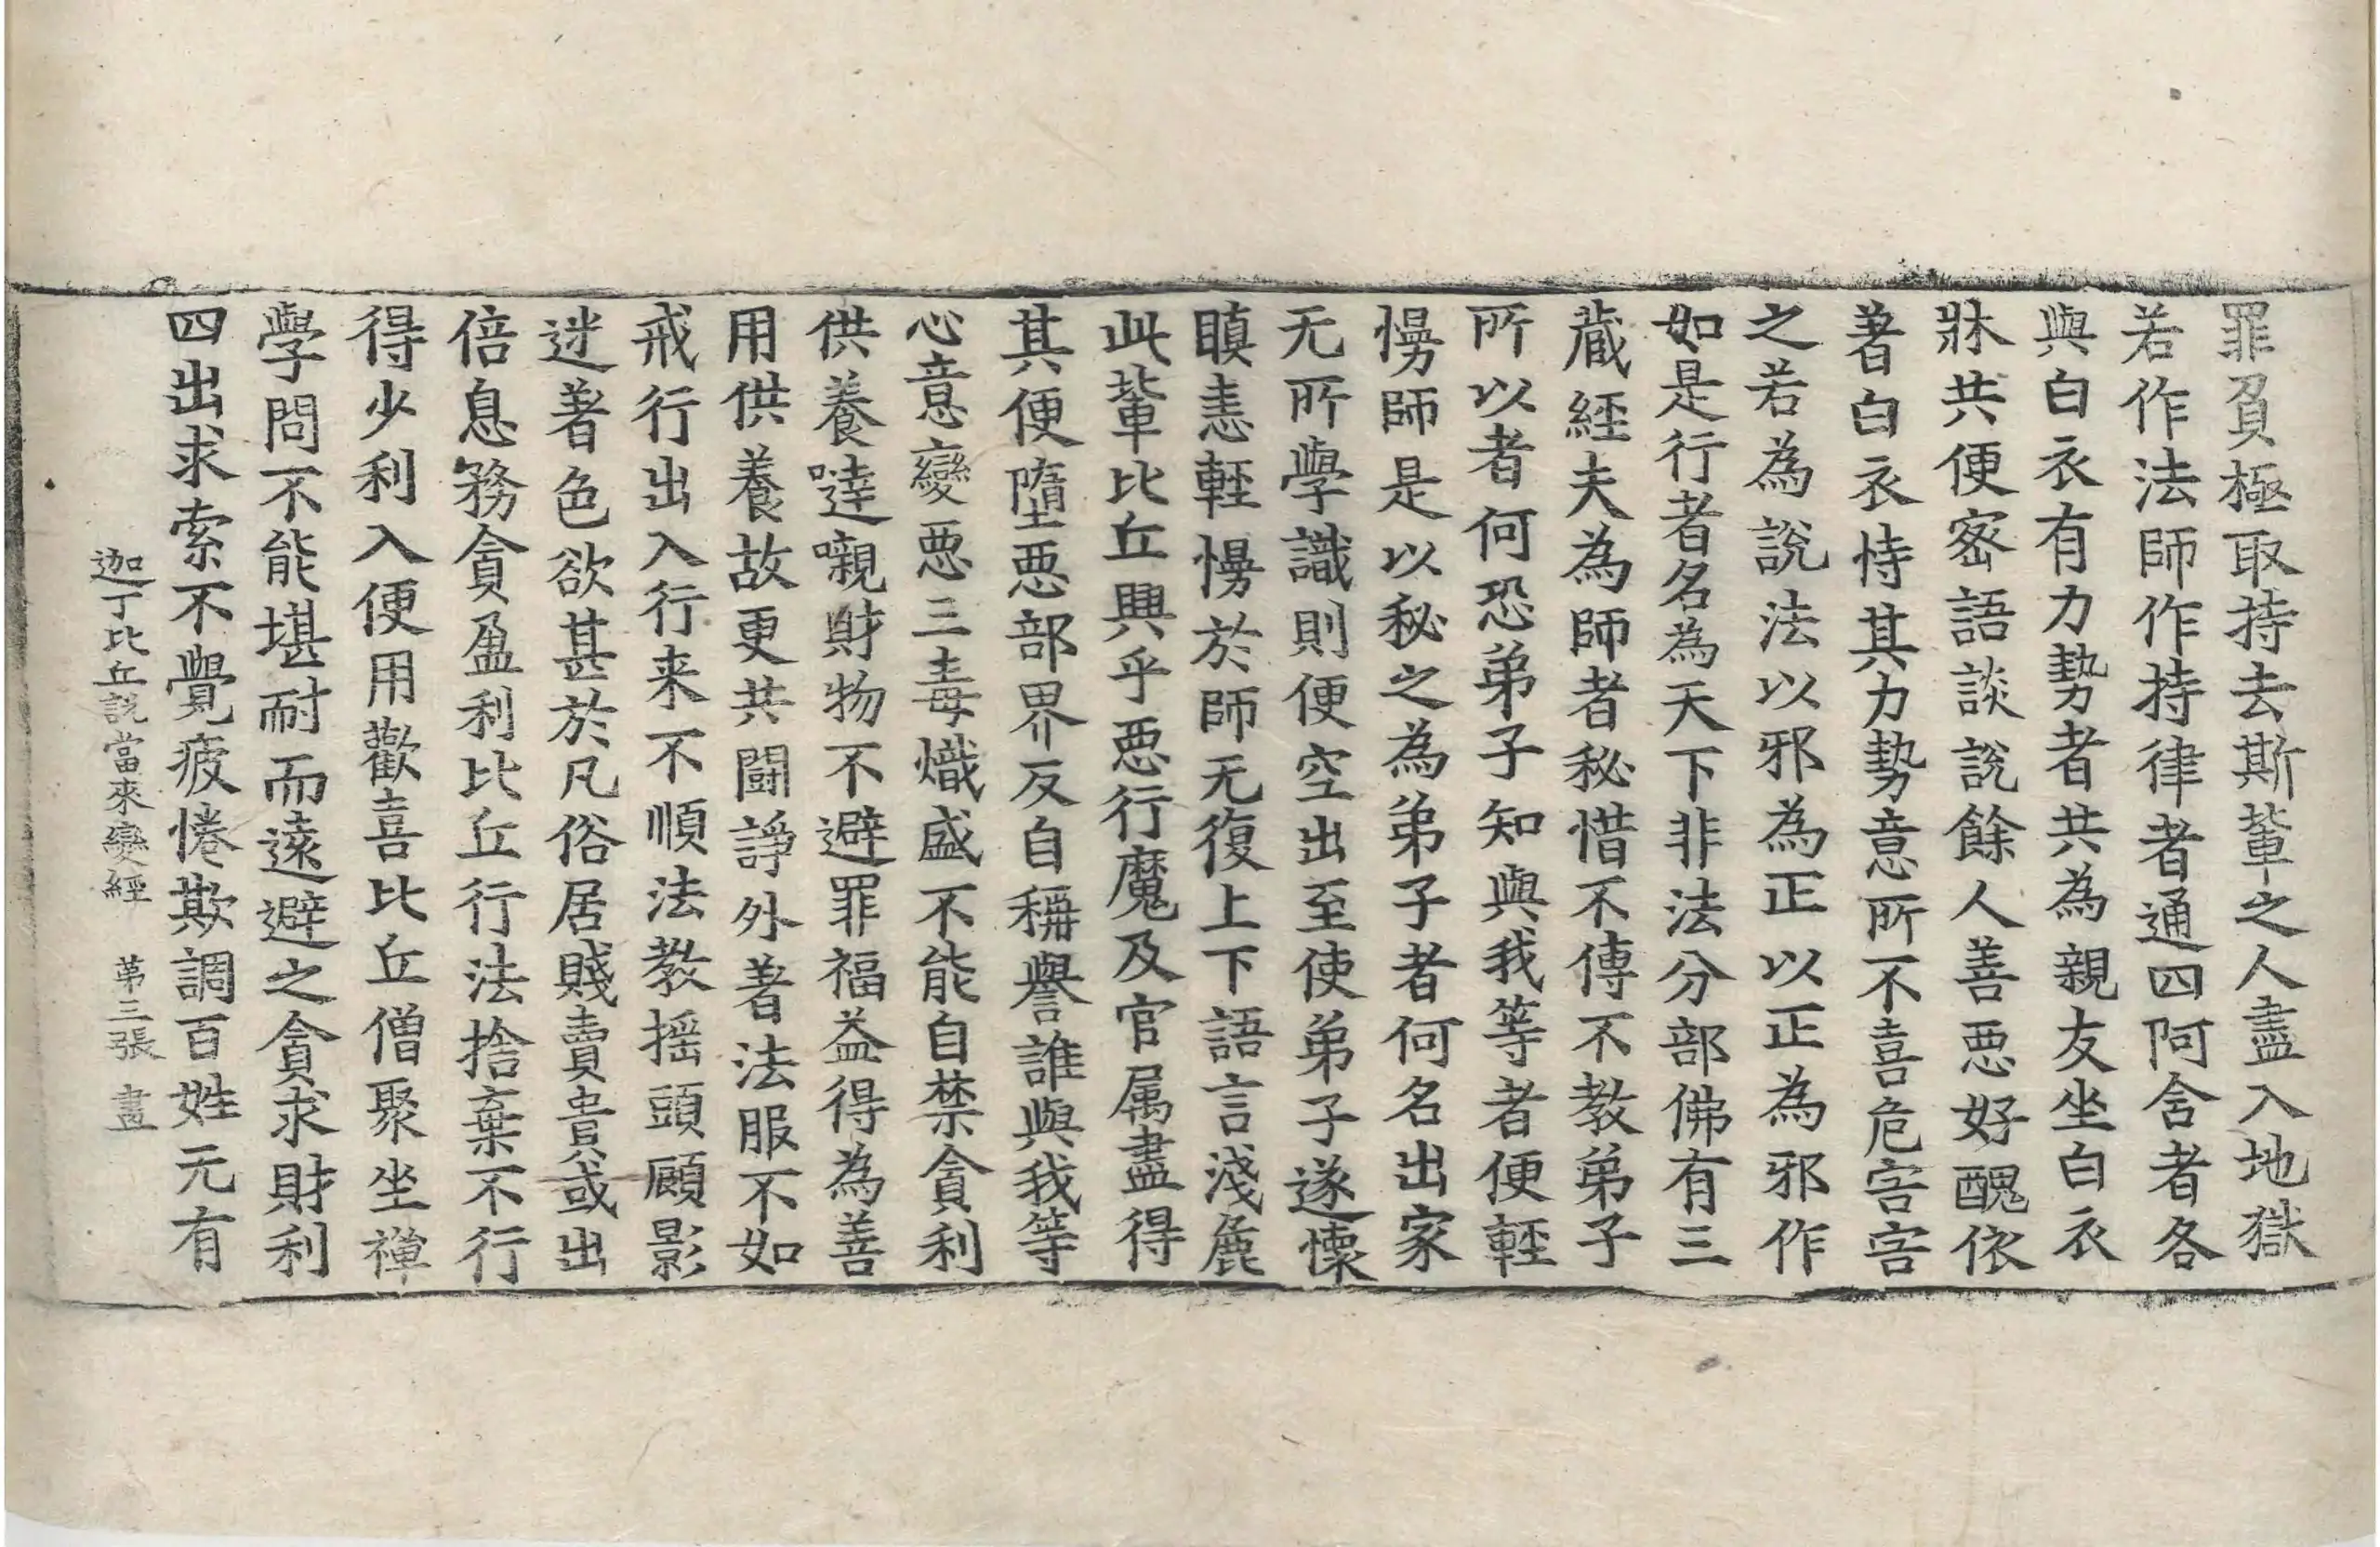 罪負極取持去斯輩之人盡入地獄
若作法師作持律者通四阿含者各
與白衣有力勢者共為親友坐白衣
牀共便密語談說餘人善惡好醜依
著白衣恃其力勢意所不喜危害害
之若為說法以邪為正以正為邪作
如是行者名為天下非法分部佛有三
藏經夫為師者秘惜不傳不教弟子
所以者何恐弟子知與我等者便輕
慢師是以秘之為弟子者何名出家
无所學識則便空出至使弟子遂懷
瞋恚輕慢於師无復上下語言淺麁
此輩比丘興乎惡行魔及官属盡得
其便墮惡部界反自稱譽誰與我等
心意變惡三毒熾盛不能自禁貪利
供養噠嚫財物不避罪福益得為善
用供養故更共鬪諍外著法服不如
戒行出入行来不順法教摇頭顧影
迷著色欲甚於凡俗居賤賣貴或出
倍息務貪盈利比丘行法捨棄不行
得少利入便用歡喜比丘僧聚坐禅
學問不能堪耐而遠避之貪求財利
四出求索不覺疲惓欺調百姓无有
迦丁比丘說當來變經 第三張 晝